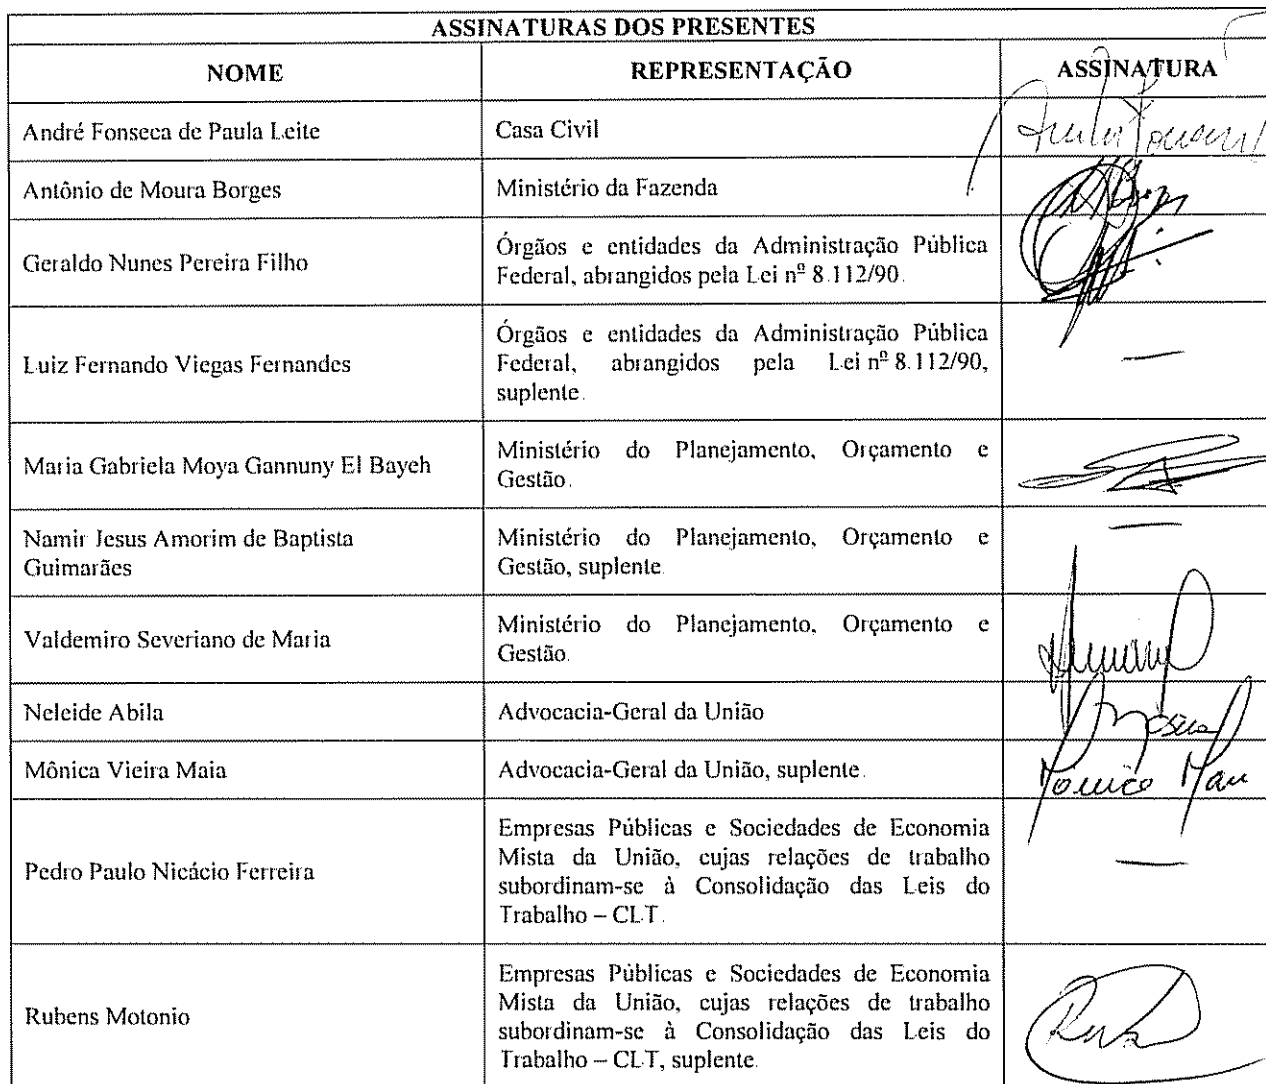 ASSINATURAS DOS PRESENTES
NOME
REPRESENTAÇÃO
ASSINATURA
André Fonseca de Paula Leite
Casa Civil
Antônio de Moura Borges
Ministério da Fazenda
Geraldo Nunes Pereira Filho
Órgãos e entidades da Administração Pública
Federal, abrangidos pela Lei nº 8.112/90.
Luiz Fernando Viegas Fernandes
Órgãos e entidades da Administração Pública
Federal, abrangidos pela Lei nº 8.112/90,
suplente.
—
Maria Gabriela Moya Gannuny El Bayeh
Ministério do Planejamento, Orçamento e
Gestão.
Namir Jesus Amorim de Baptista
Guimarães
Ministério do Planejamento, Orçamento e
Gestão, suplente.
—
Valdemiro Severiano de Maria
Ministério do Planejamento, Orçamento e
Gestão.
Neleide Abila
Advocacia-Geral da União
Mônica Vieira Maia
Advocacia-Geral da União, suplente.
Pedro Paulo Nicácio Ferreira
Empresas Públicas e Sociedades de Economia
Mista da União, cujas relações de trabalho
subordinam-se à Consolidação das Leis do
Trabalho – CLT.
—
Rubens Motonio
Empresas Públicas e Sociedades de Economia
Mista da União, cujas relações de trabalho
subordinam-se à Consolidação das Leis do
Trabalho – CLT, suplente.